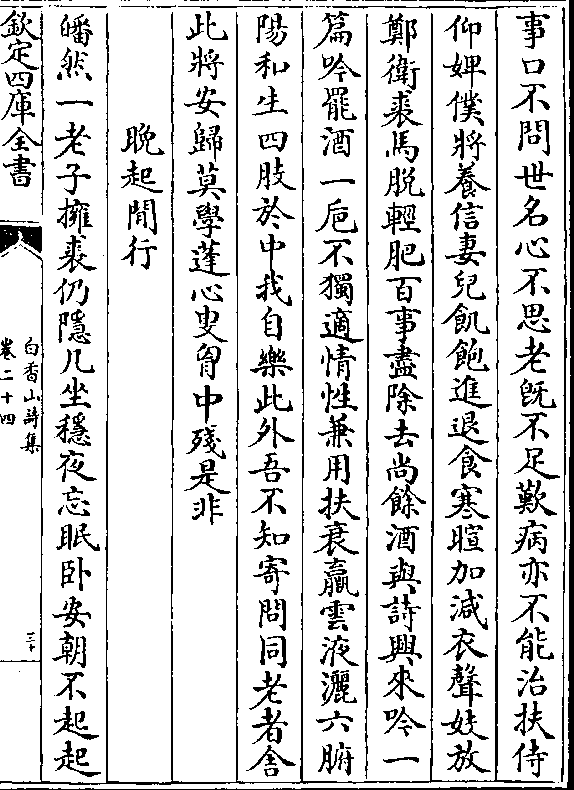 事口不問世名心不思老旣不足歎病亦不能治扶侍
仰婢僕將養信妻兒飢飽進退食寒暄加減衣聲妓放
鄭衛裘馬脫輕肥百事盡除去尚餘酒與詩興來吟一
篇吟罷酒一巵不獨適情性兼用扶衰羸雲液灑六腑
陽和生四肢於中我自樂此外吾不知寄問同老者舎
此將安歸莫學蓬心叟胷中殘是非
晚起閒行
皤然一老子擁裘仍隱几坐穩夜忘眠卧安朝不起起
欽定四庫全書
白香山詩集
卷二十四
三十